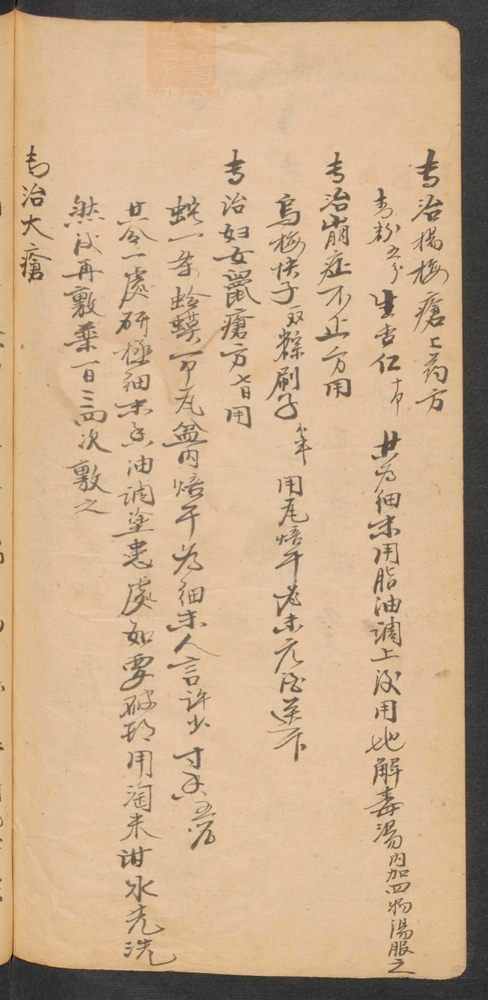 专治杨梅瘡上药方
青粉五分 生杏仁十个 共为细末用脂油调上后用 解毒湯内加四物湯服之
专治崩症不止方用
烏梅 子 双 棕刷子 用瓦焙干为末 酒送下
专治妇女鼠瘡方 用
蛇一条 蛤蟆一个 瓦盆内焙干为细末人言许少 寸香五分
共合一處研極细末香油调塗患處如要破 用淘米泔水先洗
然後再敷藥一百三四次敷之
专治大瘡